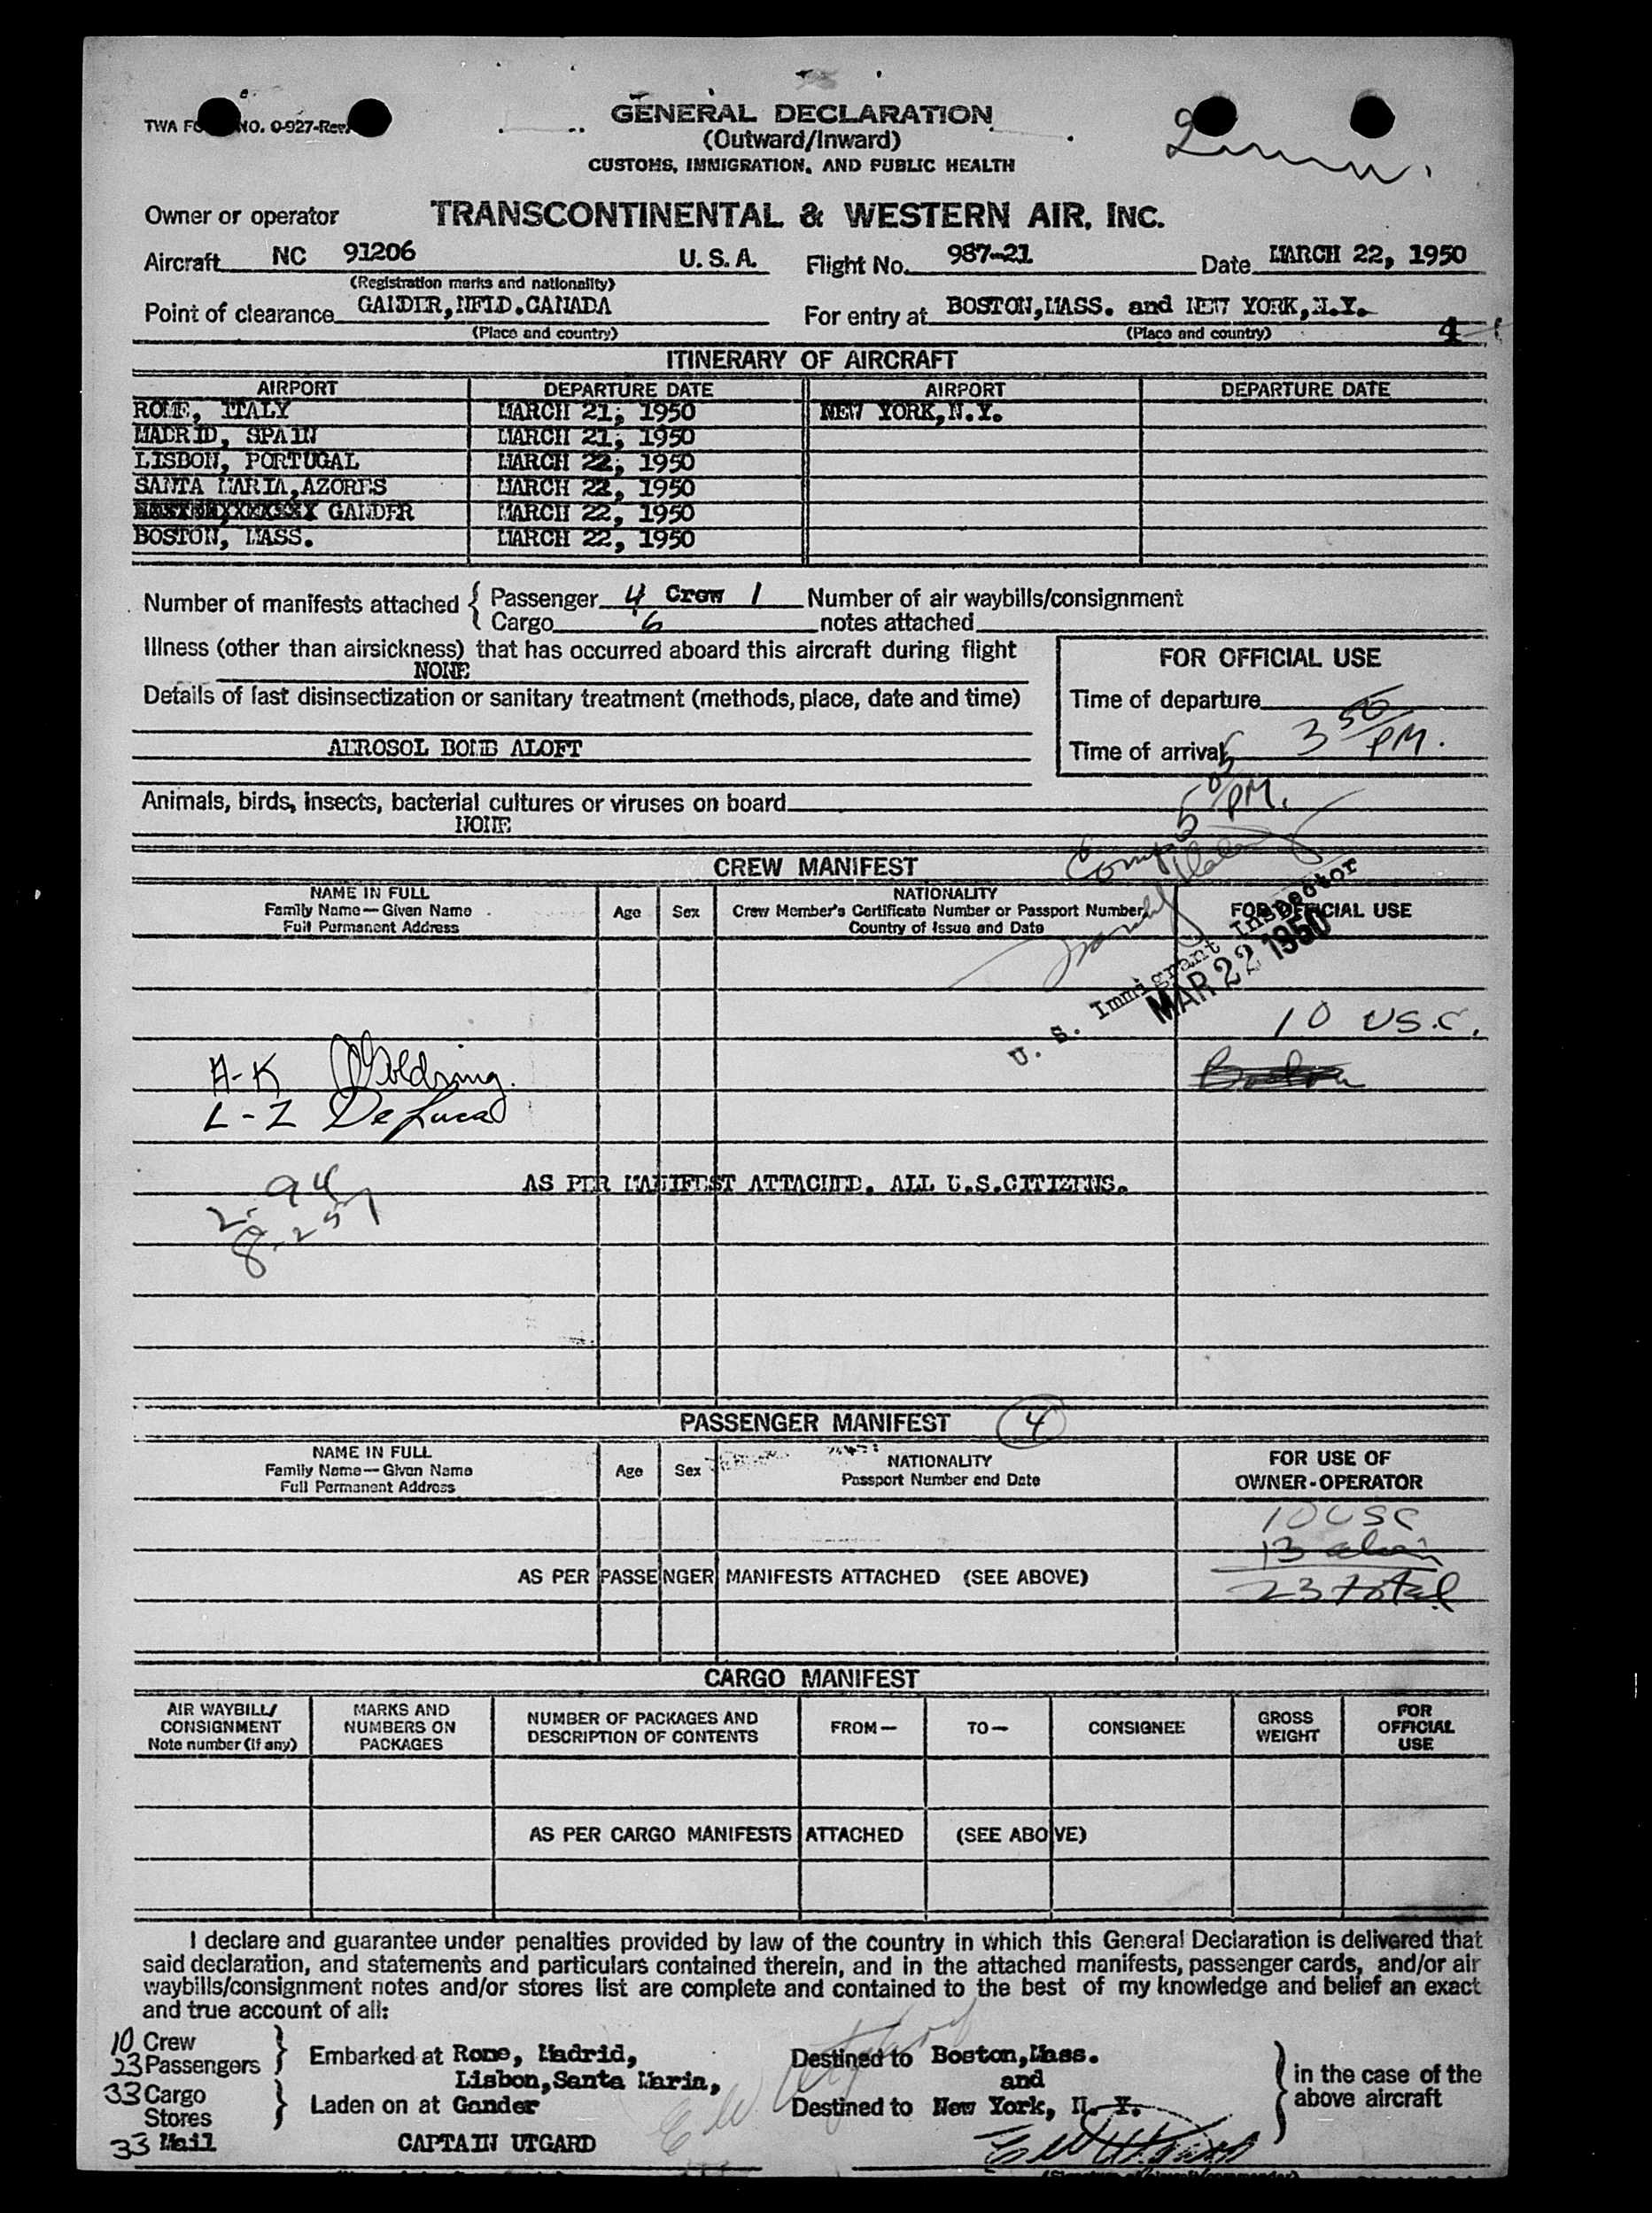 TWA FO NO. O-927-Rev.
GENERAL DECLARATION
(Outward/Inward)
CUSTOMS, IMMIGRATION, AND PUBLIC HEALTH
Owner or operator TRANSCONTINENTAL & WESTERN AIR, INC.
Aircraft NC 91206 U.S.A. Flight No. 987-21 Date MARCH 22, 1950
(Registration marks and nationality)
Point of clearance GANDER,NFLD.CANADA For entry at BOSTON,MASS. and NEW YORK,N.Y.
(Place and country) (Place and country) 4
ITINERARY OF AIRCRAFT
AIRPORT DEPARTURE DATE AIRPORT DEPARTURE DATE
ROME, ITALY MARCH 21, 1950 NEW YORK,N.Y.
MADRID, SPAIN MARCH 21, 1950
LISBON, PORTUGAL MARCH 22, 1950
SANTA MARIA,AZORES MARCH 22, 1950
GANDER MARCH 22, 1950
BOSTON, MASS. MARCH 22, 1950
Number of manifests attached { Passenger 4 Crew 1 Number of air waybills/consignment
Cargo 6 notes attached
Illness (other than airsickness) that has occurred aboard this aircraft during flight
NONE
FOR OFFICIAL USE
Details of last disinsectization or sanitary treatment (methods, place, date and time)
Time of departure
AEROSOL BOMB ALOFT
Time of arrival 3 55 PM.
5 05 PM.
Animals, birds, insects, bacterial cultures or viruses on board
NONE
CREW MANIFEST
NAME IN FULL
Family Name—Given Name
Full Permanent Address
Age Sex
NATIONALITY
Crew Member's Certificate Number or Passport Number,
Country of Issue and Date
FOR OFFICIAL USE
U. S. Immigrant Inspector
MAR 22 1950
10 U.S.C.
A-K Goldring.
L-Z DeLuca
AS PER MANIFEST ATTACHED. ALL U.S.CITIZENS.
PASSENGER MANIFEST 4
NAME IN FULL
Family Name—Given Name
Full Permanent Address
Age Sex
NATIONALITY
Passport Number and Date
FOR USE OF
OWNER-OPERATOR
10 USC
13 alien
23 total
AS PER PASSENGER MANIFESTS ATTACHED (SEE ABOVE)
CARGO MANIFEST
AIR WAYBILL/
CONSIGNMENT
Note number (if any)
MARKS AND
NUMBERS ON
PACKAGES
NUMBER OF PACKAGES AND
DESCRIPTION OF CONTENTS
FROM—
TO—
CONSIGNEE
GROSS
WEIGHT
FOR
OFFICIAL
USE
AS PER CARGO MANIFESTS ATTACHED (SEE ABOVE)
I declare and guarantee under penalties provided by law of the country in which this General Declaration is delivered that
said declaration, and statements and particulars contained therein, and in the attached manifests, passenger cards, and/or air
waybills/consignment notes and/or stores list are complete and contained to the best of my knowledge and belief an exact
and true account of all:
10 Crew
23 Passengers } Embarked at Rome, Madrid, Destined to Boston,Mass.
Lisbon,Santa Maria, and
33 Cargo } Laden on at Gander Destined to New York, N. Y.
Stores
} in the case of the
above aircraft
33 Mail CAPTAIN UTGARD